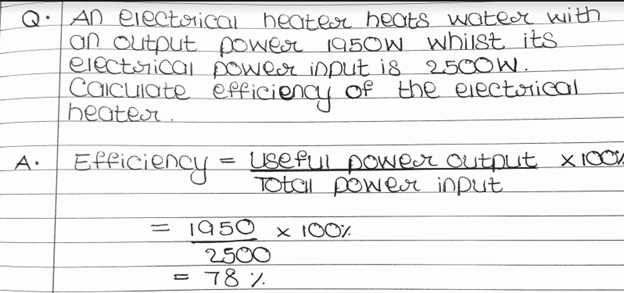 Q. An electrical heater heats water with
an output power 1950W whilst its
electrical power input is 2500W.
Calculate efficiency of the electrical
heater.
A. Efficiency = Useful power output × 100%
Total power input
= 1950 × 100%
2500
= 78 %